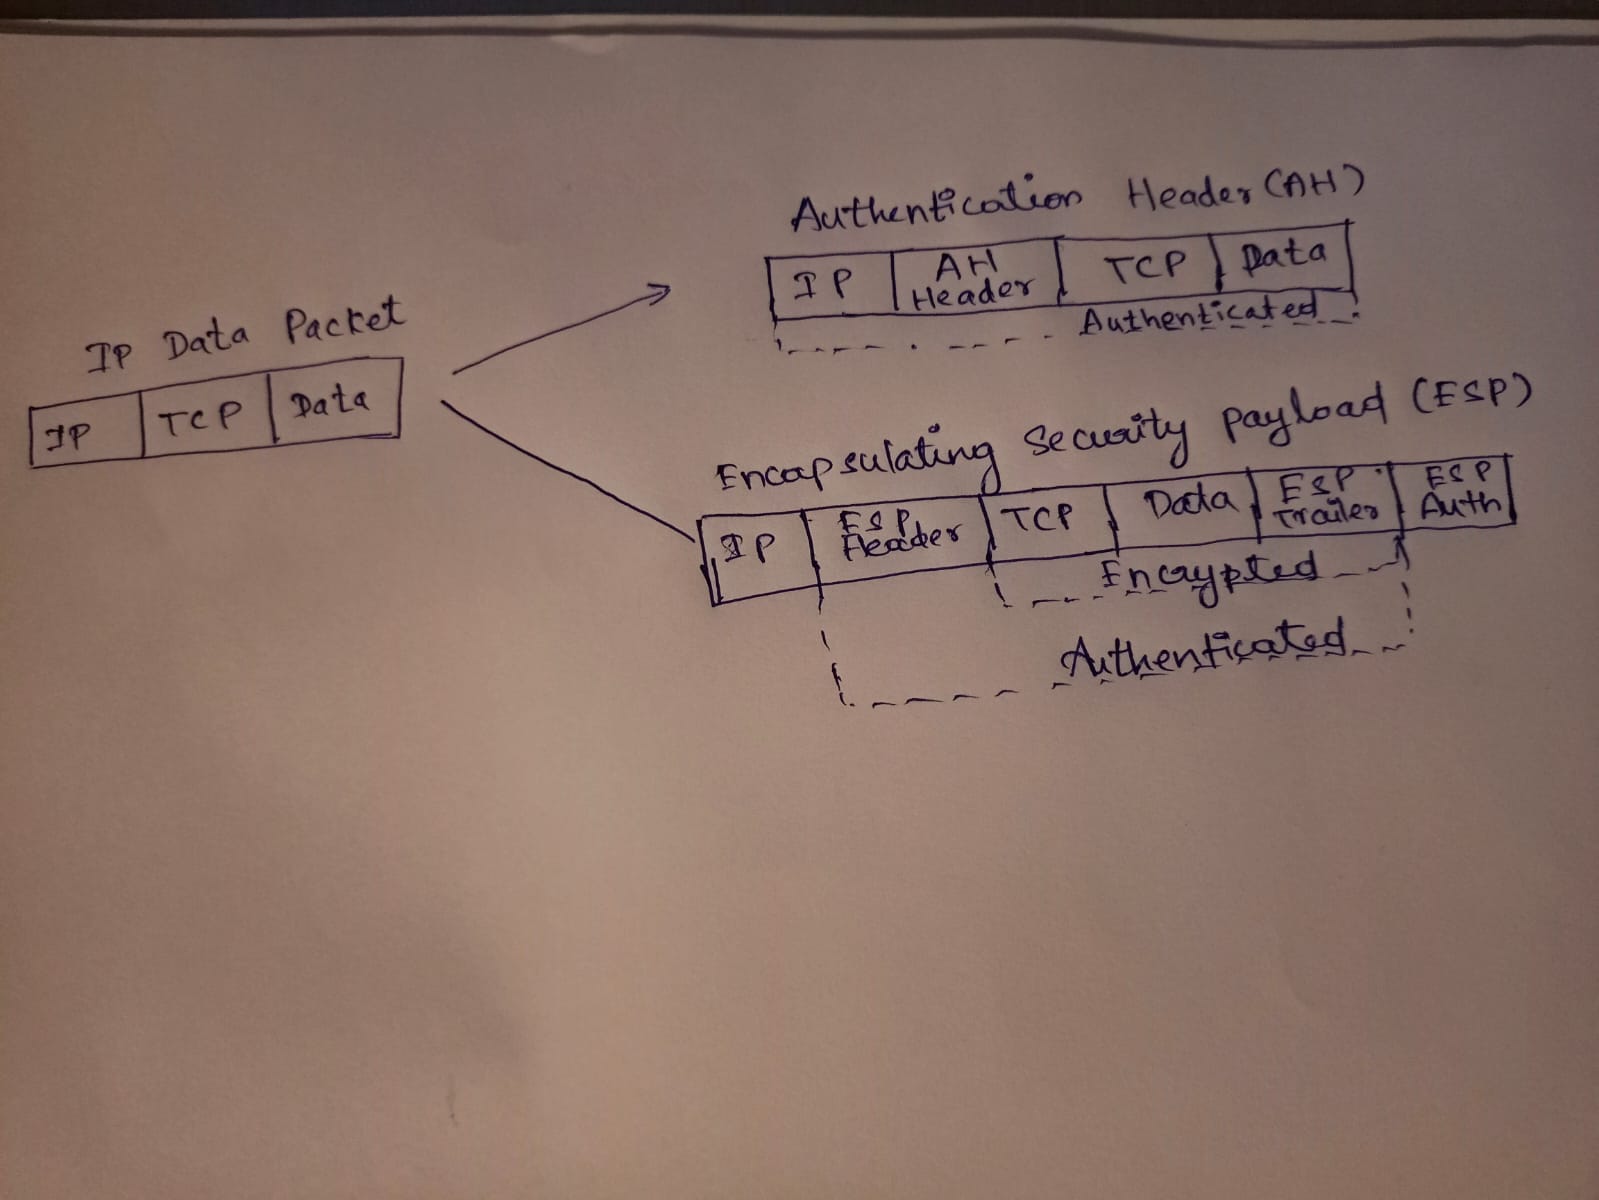 IP Data Packet
IP TCP Data
Authentication Header (AH)
IP AH Header TCP Data
Authenticated
Encapsulating Security Payload (ESP)
IP ESP Header TCP Data ESP Trailer ESP Auth
Encrypted
Authenticated